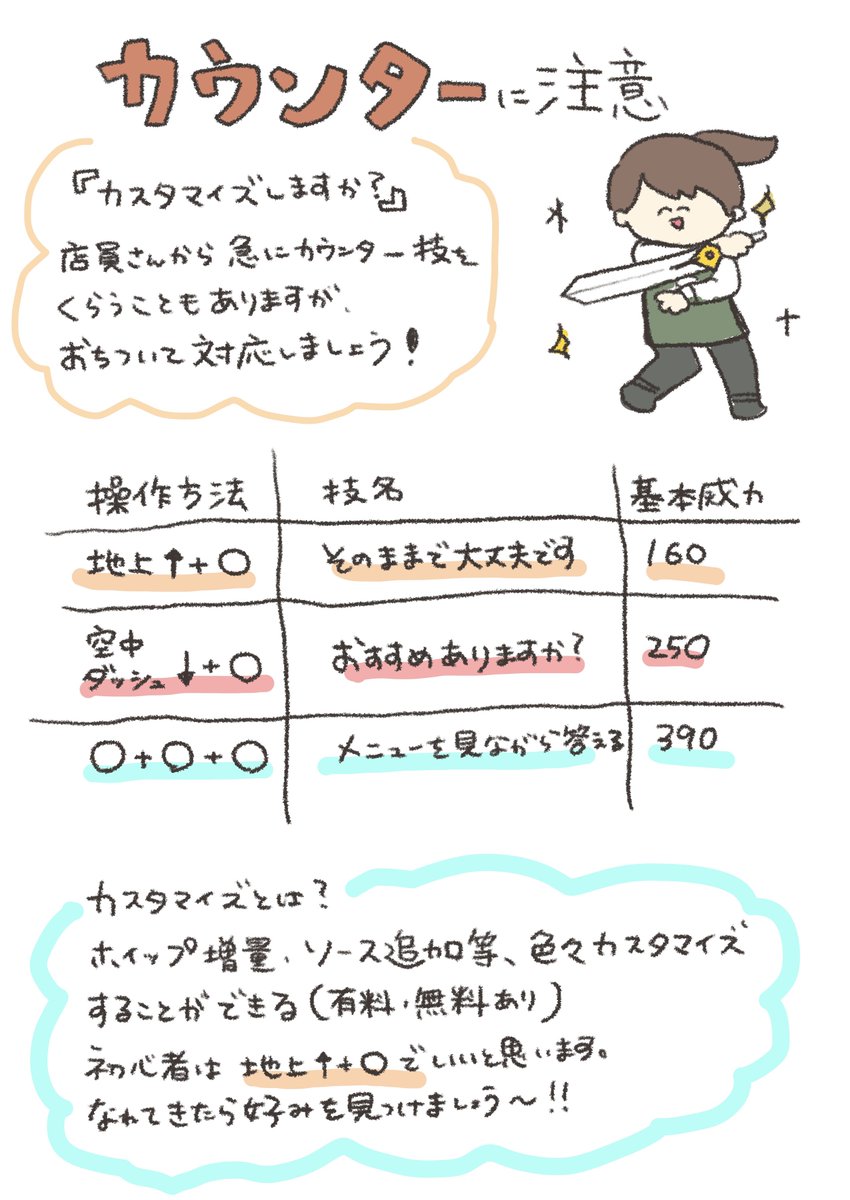 カウンターに注意
『カスタマイズしますか?』
店員さんから急にカウンター技を
くらうこともありますが、
おちついて対応しましょう!
操作方法 技名 基本威力
地上↑+○ そのままで大丈夫です 160
空中
ダッシュ↓+○ おすすめありますか? 250
○+○+○ メニューを見ながら答える 390
カスタマイズとは?
ホイップ増量、ソース追加等、色々カスタマイズ
することができる(有料・無料あり)
初心者は 地上↑+○ でいいと思います。
なれてきたら好みを見つけましょう〜!!